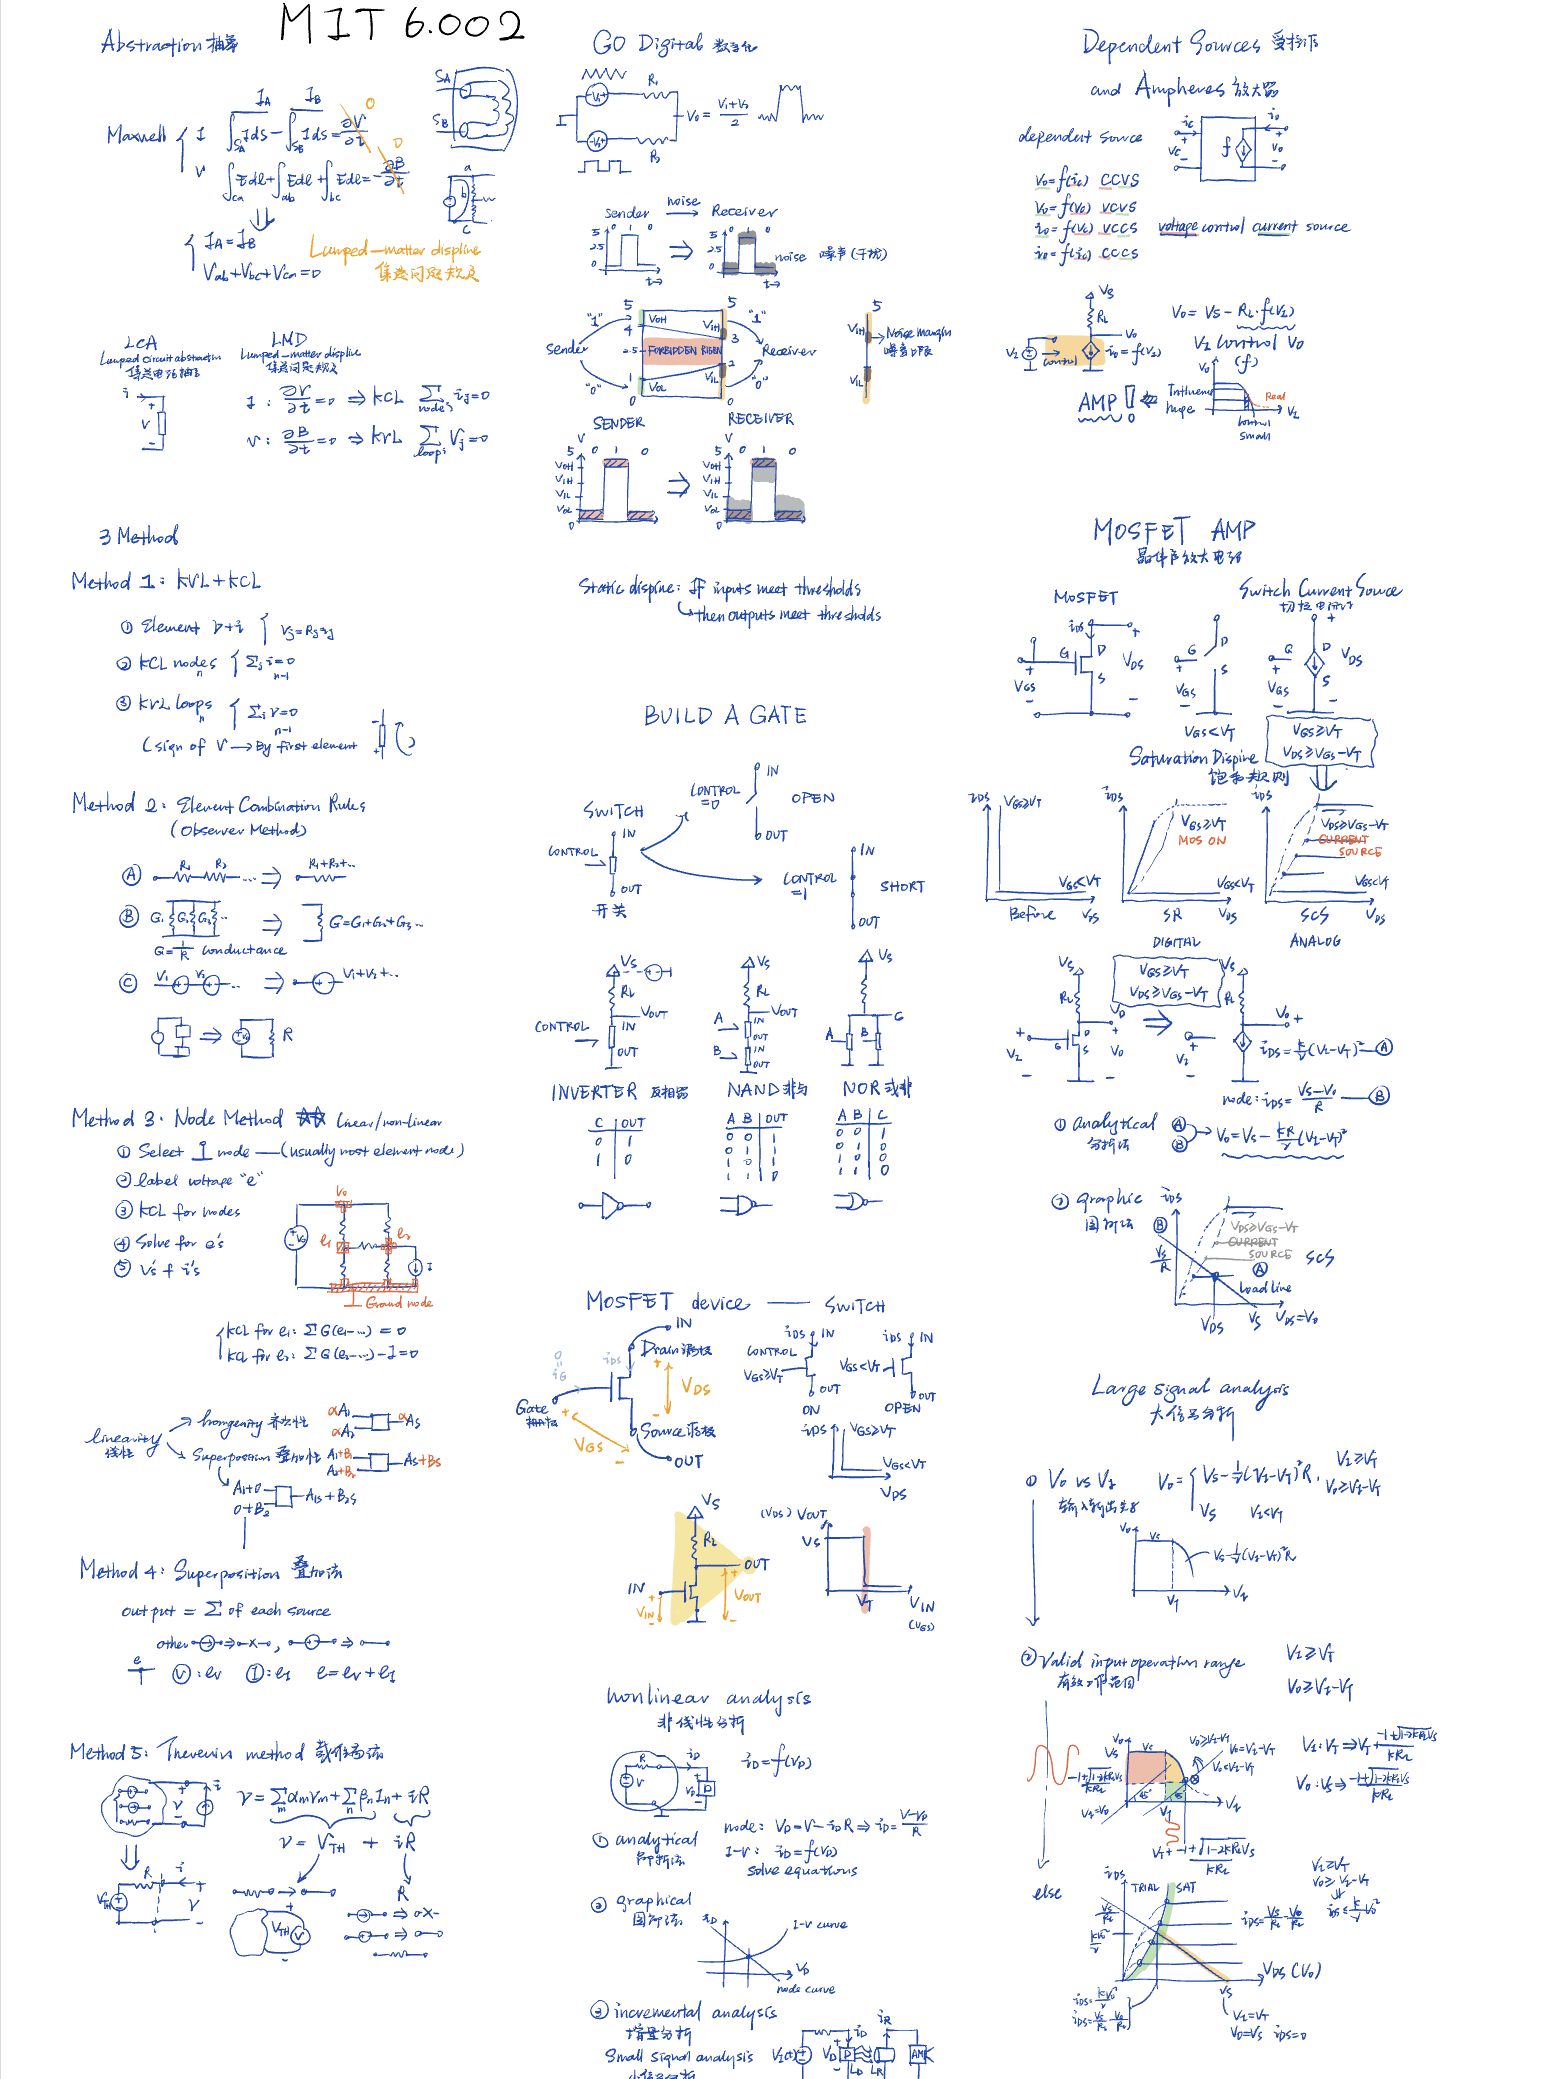 MIT 6.002
Abstraction 抽象
Maxwell
I
∫SA Ids - ∫SB Ids = ∂V/∂t
IA IB
0
V
∫ca Edl + ∫ab Edl + ∫bc Edl = -∂B/∂t
0
SA
SB
a
b
c
IA = IB
Vab+Vbc+Vca=0
Lumped-matter displine
LCA
Lumped circuit abstraction
i
+
V
-
LMD
Lumped-matter displine
I : ∂V/∂t =0 ⇒ KCL ∑nodes ij=0
V : ∂B/∂t =0 ⇒ KVL ∑loops Vj=0
3 Method
Method 1: KVL+KCL
① Element V+i
② KCL nodes n { ∑j i=0 n-1
③ KVL loops n { ∑i V=0 n-1
(sign of V → By first element
Method 2: Element Combination Rules
(Observer Method)
Ⓐ R1 R2 ... ⇒ R1+R2+...
Ⓑ G1 G2 G3 ... ⇒ G=G1+G2+G3...
G=1/R conductance
Ⓒ V1 V2 ... ⇒ V1+V2+...
⇒ R
Method 3: Node Method Linear/non-linear
① Select node —(usually most element node)
② label voltage "e"
③ KCL for nodes
④ Solve for e's
⑤ V's & i's
V0
e1
e2
Ground node
KCL for e1: ΣG(e1-...) = 0
KCL for e2: ΣG(e2-...)-I=0
linearity
线性
homogenity 齐次性
αA1
αA2
αAs
Superposition 叠加性
A1+B1
A2+B2
As+Bs
A1+0
0+B2
Method 4: Superposition 叠加法
output = Σ of each source
other
e
V : ev I : eI e=ev+eI
Method 5: Thevenin method 戴维南法
v=∑m αmVm+∑n βnIn+iR
v = VTH + iR
R
VTH
GO Digital 数字化
R1
V1
V0 = (V1+V2)/2
V2
R2
noise
Sender → Receiver
0 1 0
5
2.5
0
t→
noise 噪声(干扰)
5
"1"
4
VOH
VIH
3
"1"
Sender
2.5
Receiver
"0"
1
VOL
VIL
2
"0"
0
VIH
Noise margin
VIL
SENDER RECEIVER
V
5 0 1 0
VOH
VIH
VIL
VOL
0
Static displine: If inputs meet thresholds
then outputs meet thresholds
BUILD A GATE
SWITCH
CONTROL
IN
OUT
开关
CONTROL =0
IN
OPEN
OUT
CONTROL =1
IN
SHORT
OUT
VS
RL
VOUT
CONTROL
IN
OUT
VS
RL
VOUT
A
IN
OUT
B
IN
OUT
VS
C
A B
INVERTER 反相器 NAND 与非 NOR 或非
C OUT
0 1
1 0
A B OUT
0 0 1
0 1 1
1 0 1
1 1 0
A B C
0 0 1
0 1 0
1 0 0
1 1 0
MOSFET device — SWITCH
IN
Drain 漏极
iDS
0 = iG
Gate
VDS
VGS
Source 源极
OUT
CONTROL
iDS IN
VGS≥VT
OUT
ON
iDS IN
VGS<VT
OUT
OPEN
iDS
VGS≥VT
VGS<VT
VDS
VS
RL
OUT
IN
VIN
VOUT
(VDS) VOUT
VS
VT
VIN
(VGS)
nonlinear analysis
非线性分析
R
iD
V
VD
D
iD=f(VD)
① analytical
node: VD=V-iDR ⇒ iD=(V-VD)/R
I-V: iD=f(VD)
solve equations
② graphical
iD
I-V curve
VD
node curve
③ incremental analysis
增量分析
Small signal analysis
VI(t)
iD
VD
D
LD
LR
iR
AMP
Dependent Sources
and Ampheres 放大器
dependent source
ic
+
Vc
-
f
io
+
Vo
-
Vo=f(ic) CCVS
Vo=f(Vc) VCVS
io=f(Vc) VCCS voltage control current source
io=f(ic) CCCS
VS
RL
Vo
VI
control
io=f(VI)
Vo=VS-RL·f(VI)
VI control Vo
(f)
AMP
Influence
huge
Vo
Real
VI
control
small
MOSFET AMP
MOSFET
iDS
G
D
S
VDS
VGS
G
D
S
VGS
VGS<VT
Switch Current Source
G
D
S
VDS
VGS
VGS≥VT
VDS≥VGS-VT
Saturation Displine
饱和规则
iDS
VGS≥VT
VGS<VT
VDS
Before
iDS
VGS≥VT
MOS ON
VGS<VT
VDS
SR
iDS
VDS≥VGS-VT
CURRENT
SOURCE
VGS<VT
VDS
SCS
DIGITAL ANALOG
VS
RL
VI
G
D
S
Vo
VGS≥VT
VDS≥VGS-VT
VS
RL
Vo
VI
iDS=K/2(VI-VT)² —Ⓐ
node: iDS=(VS-Vo)/R —Ⓑ
① analytical
分析法
Ⓐ
Ⓑ
Vo=VS-KR/2(VI-VT)²
② graphic
iDS
Ⓑ
VS/R
VDS≥VGS-VT
CURRENT
SOURCE
SCS
Ⓐ
Load line
VDS VS VDS=Vo
Large signal analysis
大信号分析
① Vo vs VI
Vo VS
VS VI<VT
VI≥VT
Vo≥VI-VT
VT VI
② Valid input operation range
VI≥VT
Vo≥VI-VT
Vo
VS
Vo≥VI-VT
Vo=VI-VT
Vo<VI-VT
45°
VI=Vo
VT
VI
VI: VT ⇒ VT+(-1+√(1+2KRLVS))/KRL
Vo: VS ⇒ (-1+√(1+2KRLVS))/KRL
else
iDS
TRIAL SAT
VI≥VT
Vo≥VI-VT
iDS≤K/2 Vo²
VS/RL
iDS=VS/RL-Vo/RL
VDS (Vo)
VS
iDS=K/2 Vo²
iDS=VS/RL-Vo/RL
VI=VT
Vo=VS iDS=0